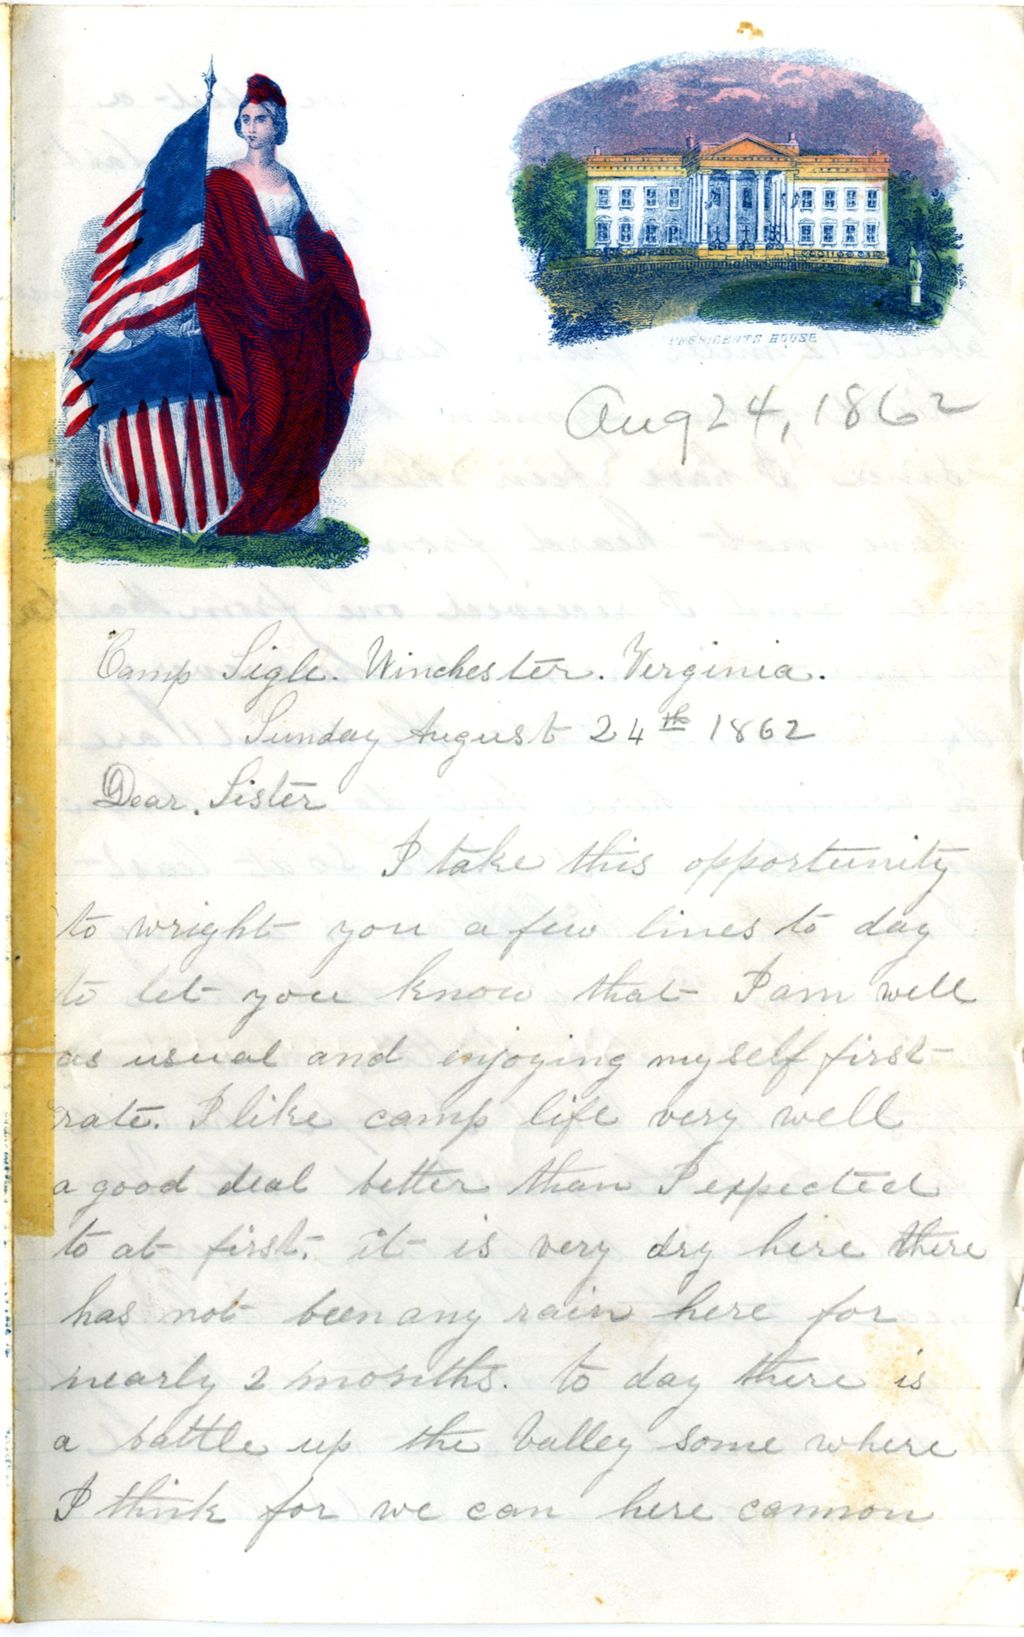 PRESIDENTS HOUSE
Aug 24, 1862
Camp Sigle. Winchester. Verginia.
Sunday August 24th 1862
Dear. Sister
I take this opportunity
to wright you a few lines to day
to let you know that I am well
as usual and enjoying myself first
rate. I like camp life very well
a good deal better than I expected
to at first. it is very dry here there
has not been any rain here for
nearly 2 months. to day there is
a battle up the Valley some where
I think for we can here cannon